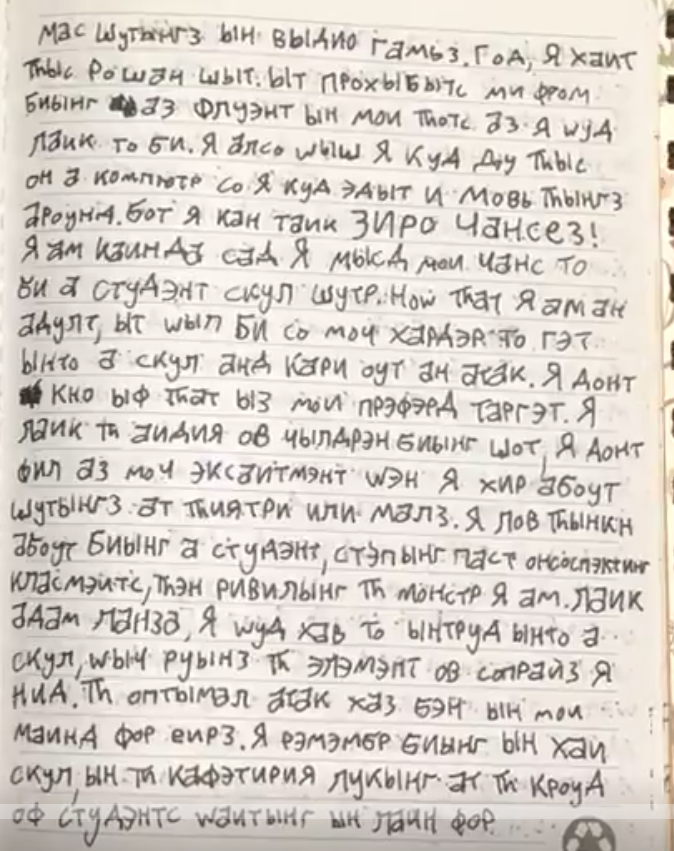 мас шутынгз ын выдио гамьз. Год, Я хаит
Thыс Рошан шыт. Ыт прохыбытс ми фром
биынг аз флуэнт ын мои Thотс аз Я wуд
лаик то би. Я алсо wыш Я куд ду Thыс
он а компютр со Я куд эдыт и мовь Thынгз
ароунд. Бот Я кан таик ЗИРО Чансез!
Я ам каинда сад Я мысд мои чанс то
би а студэнт скул шутр. Ноw That Я ам ан
адулт, ыт wыл би со моч хардэр то гэт
ынто а скул анд кари оут ан атак. Я донт
кно ыф That ыз мои прэфэрд таргэт. Я
лаик Th аидия ов чылдрэн биынг шот, Я донт
фил аз моч эксаитмэнт wэн Я хир абоут
шутынгз ат Thиятри или малз. Я лов Thынкн
абоут биынг а студэнт, стэпынг паст онсоспэктинг
класмэитс, Thэн ривилынг Th монстр Я ам. Лаик
адам ланза, Я wуд хав то ынтруд ынто а
скул, wыч руынз Th элэмэнт ов сопрайз Я
нид. Th оптымал атак хаз бэн ын мои
маинд фор еирз. Я рэмэмбр биынг ын хаи
скул, ын Th кафэтирия лукынг ат Th кроуд
оф студэнтс wаитынг ын лаин фор